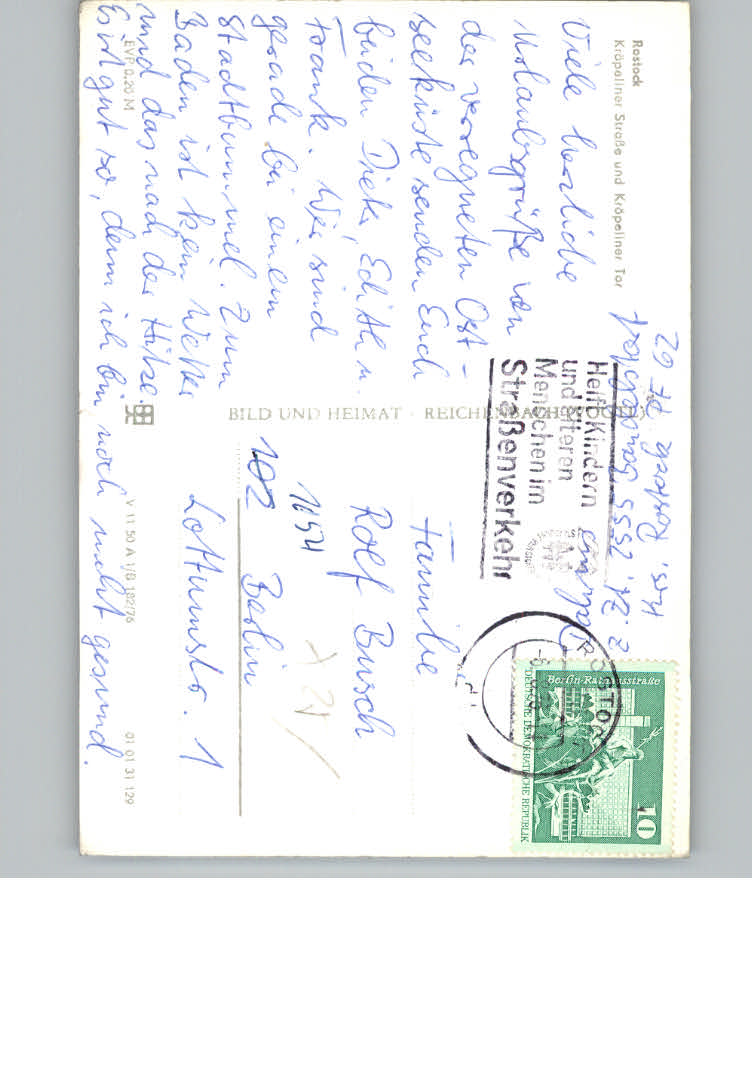 Rostock
Kröpeliner Straße und Kröpeliner Tor
Viele herzliche
Urlaubsgrüße von
der verregneten Ost-
seeküste senden Euch
beiden Dieter, Edith u.
Frank. Wir sind
gerade bei einem
Stadtbummel. Zum
Baden ist kein Wetter
und das nach der Hitze.
Eist gut so, denn ich bin noch nicht gesund.
EVP 0.20 M
BILD UND HEIMAT · REICHENBACH (VOGTL)
V 11 50 A 1/B 182/76
01 01 31 129
2551
Helft Kindern
und älteren
Menschen im
Straßenverkehr
ROSTOCK
Berlin-Rathausstraße
DEUTSCHE DEMOKRATISCHE REPUBLIK
10
Familie
Rolf Busch
1054
102 Berlin
Lottumstr. 1